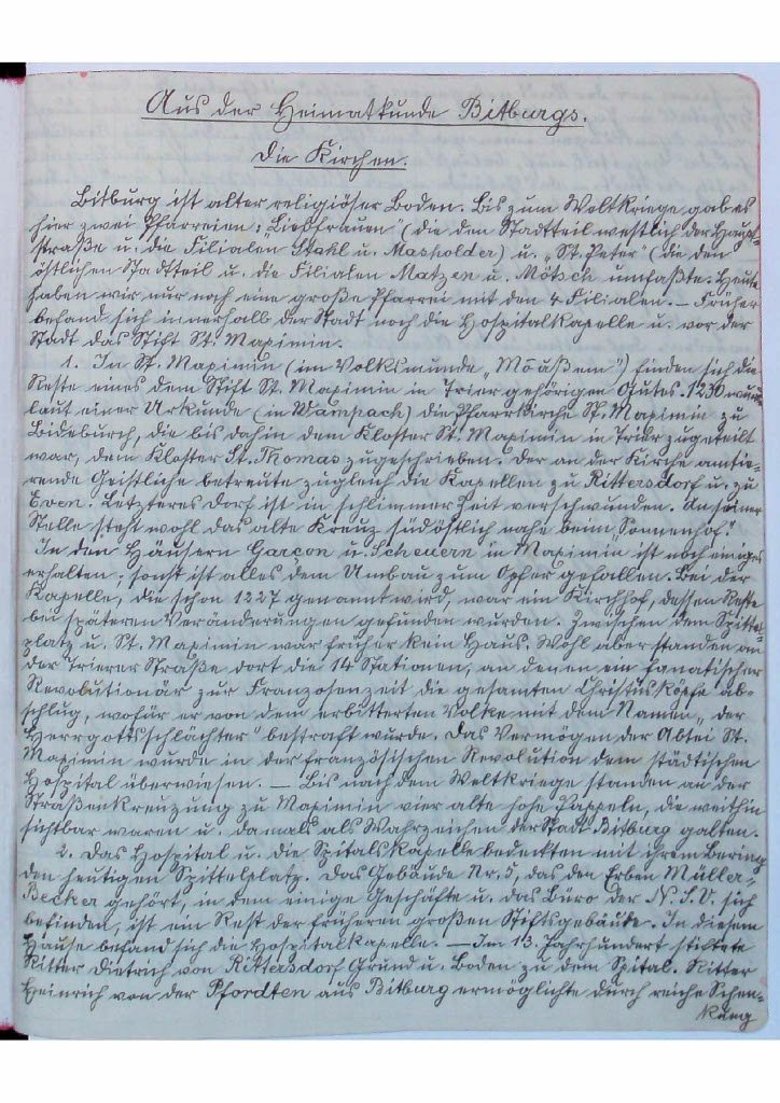 Aus der Heimatkunde Bitburgs.
Die Kirchen.
Bitburg ist alter religiöser Boden. Bis zum Weltkriege gab es
hier zwei Pfarreien: „Liebfrauen (die den Stadtteil westlich der Haupt-
straße u. die Filialen Stahl u. Masholder) u. „St. Peter (die den
östlichen Stadtteil u. die Filialen Matzen u. Mötsch umfaßte. Heute
haben wir nur noch eine große Pfarrei mit den 4 Filialen. – Früher
befand sich innerhalb der Stadt noch die Hospitalkapelle u. vor der
Stadt das Stift St. Maximin.
1. In St. Maximin (im Volksmunde „Möäßem") finden sich die
Reste eines dem Stift St. Maximin in Trier gehörigen Gutes. 1230 wurde
laut einer Urkunde (in Wampach) die Pfarrkirche St. Maximin zu
Bideburch, die bis dahin dem Kloster St. Maximin in Trier zugeteilt
war, dem Kloster St. Thomas zugeschrieben. Der an der Kirche amtie-
rende Geistliche betreute zugleich die Kapellen zu Rittersdorf u. zu
Even. Letzteres Dorf ist in schlimmer Zeit verschwunden. An seiner
Stelle steht wohl das alte Kreuz südöstlich nahe beim „Sonnenhof".
In den Häusern Garçon u. Scheuern in Maximin ist noch einiges
erhalten; sonst ist alles dem Umbau zum Opfer gefallen. Bei der
Kapelle, die schon 1227 genannt wird, war ein Kirchhof, dessen Reste
bei späteren Veränderungen gefunden wurden. Zwischen dem Spittel-
platz u. St. Maximin war früher kein Haus. Wohl aber standen an
der Trierer Straße dort die 14 Stationen, an denen ein fanatischer
Revolutionär zur Franzosenzeit die gesamten Christusköpfe ab-
schlug, wofür er von dem erbitterten Volke mit dem Namen „der
Herrgottsschlächter" bestraft wurde. Das Vermögen der Abtei St.
Maximin wurde in der französischen Revolution dem städtischen
Hospital überwiesen. – Bis nach dem Weltkriege standen an der
Straßenkreuzung zu Maximin vier alte hohe Pappeln, die weithin
sichtbar waren u. damals als Wahrzeichen der Stadt Bitburg galten.
2. Das Hospital u. die Spitalskapelle bedeckten mit ihrem Bering
den heutigen Spittelplatz. Das Gebäude Nr. 5, das den Erben Müller-
Becker gehört, in dem einige Geschäfte u. das Büro der N.S.V. sich
befinden, ist ein Rest der früheren großen Stiftsgebäude. In diesem
Hause befand sich die Hospitalkapelle. – Im 13. Jahrhundert stiftete
Ritter Dietrich von Rittersdorf Grund u. Boden zu dem Spital. Ritter
Heinrich von der Pfordten aus Bitburg ermöglichte durch reiche Schen-
kung